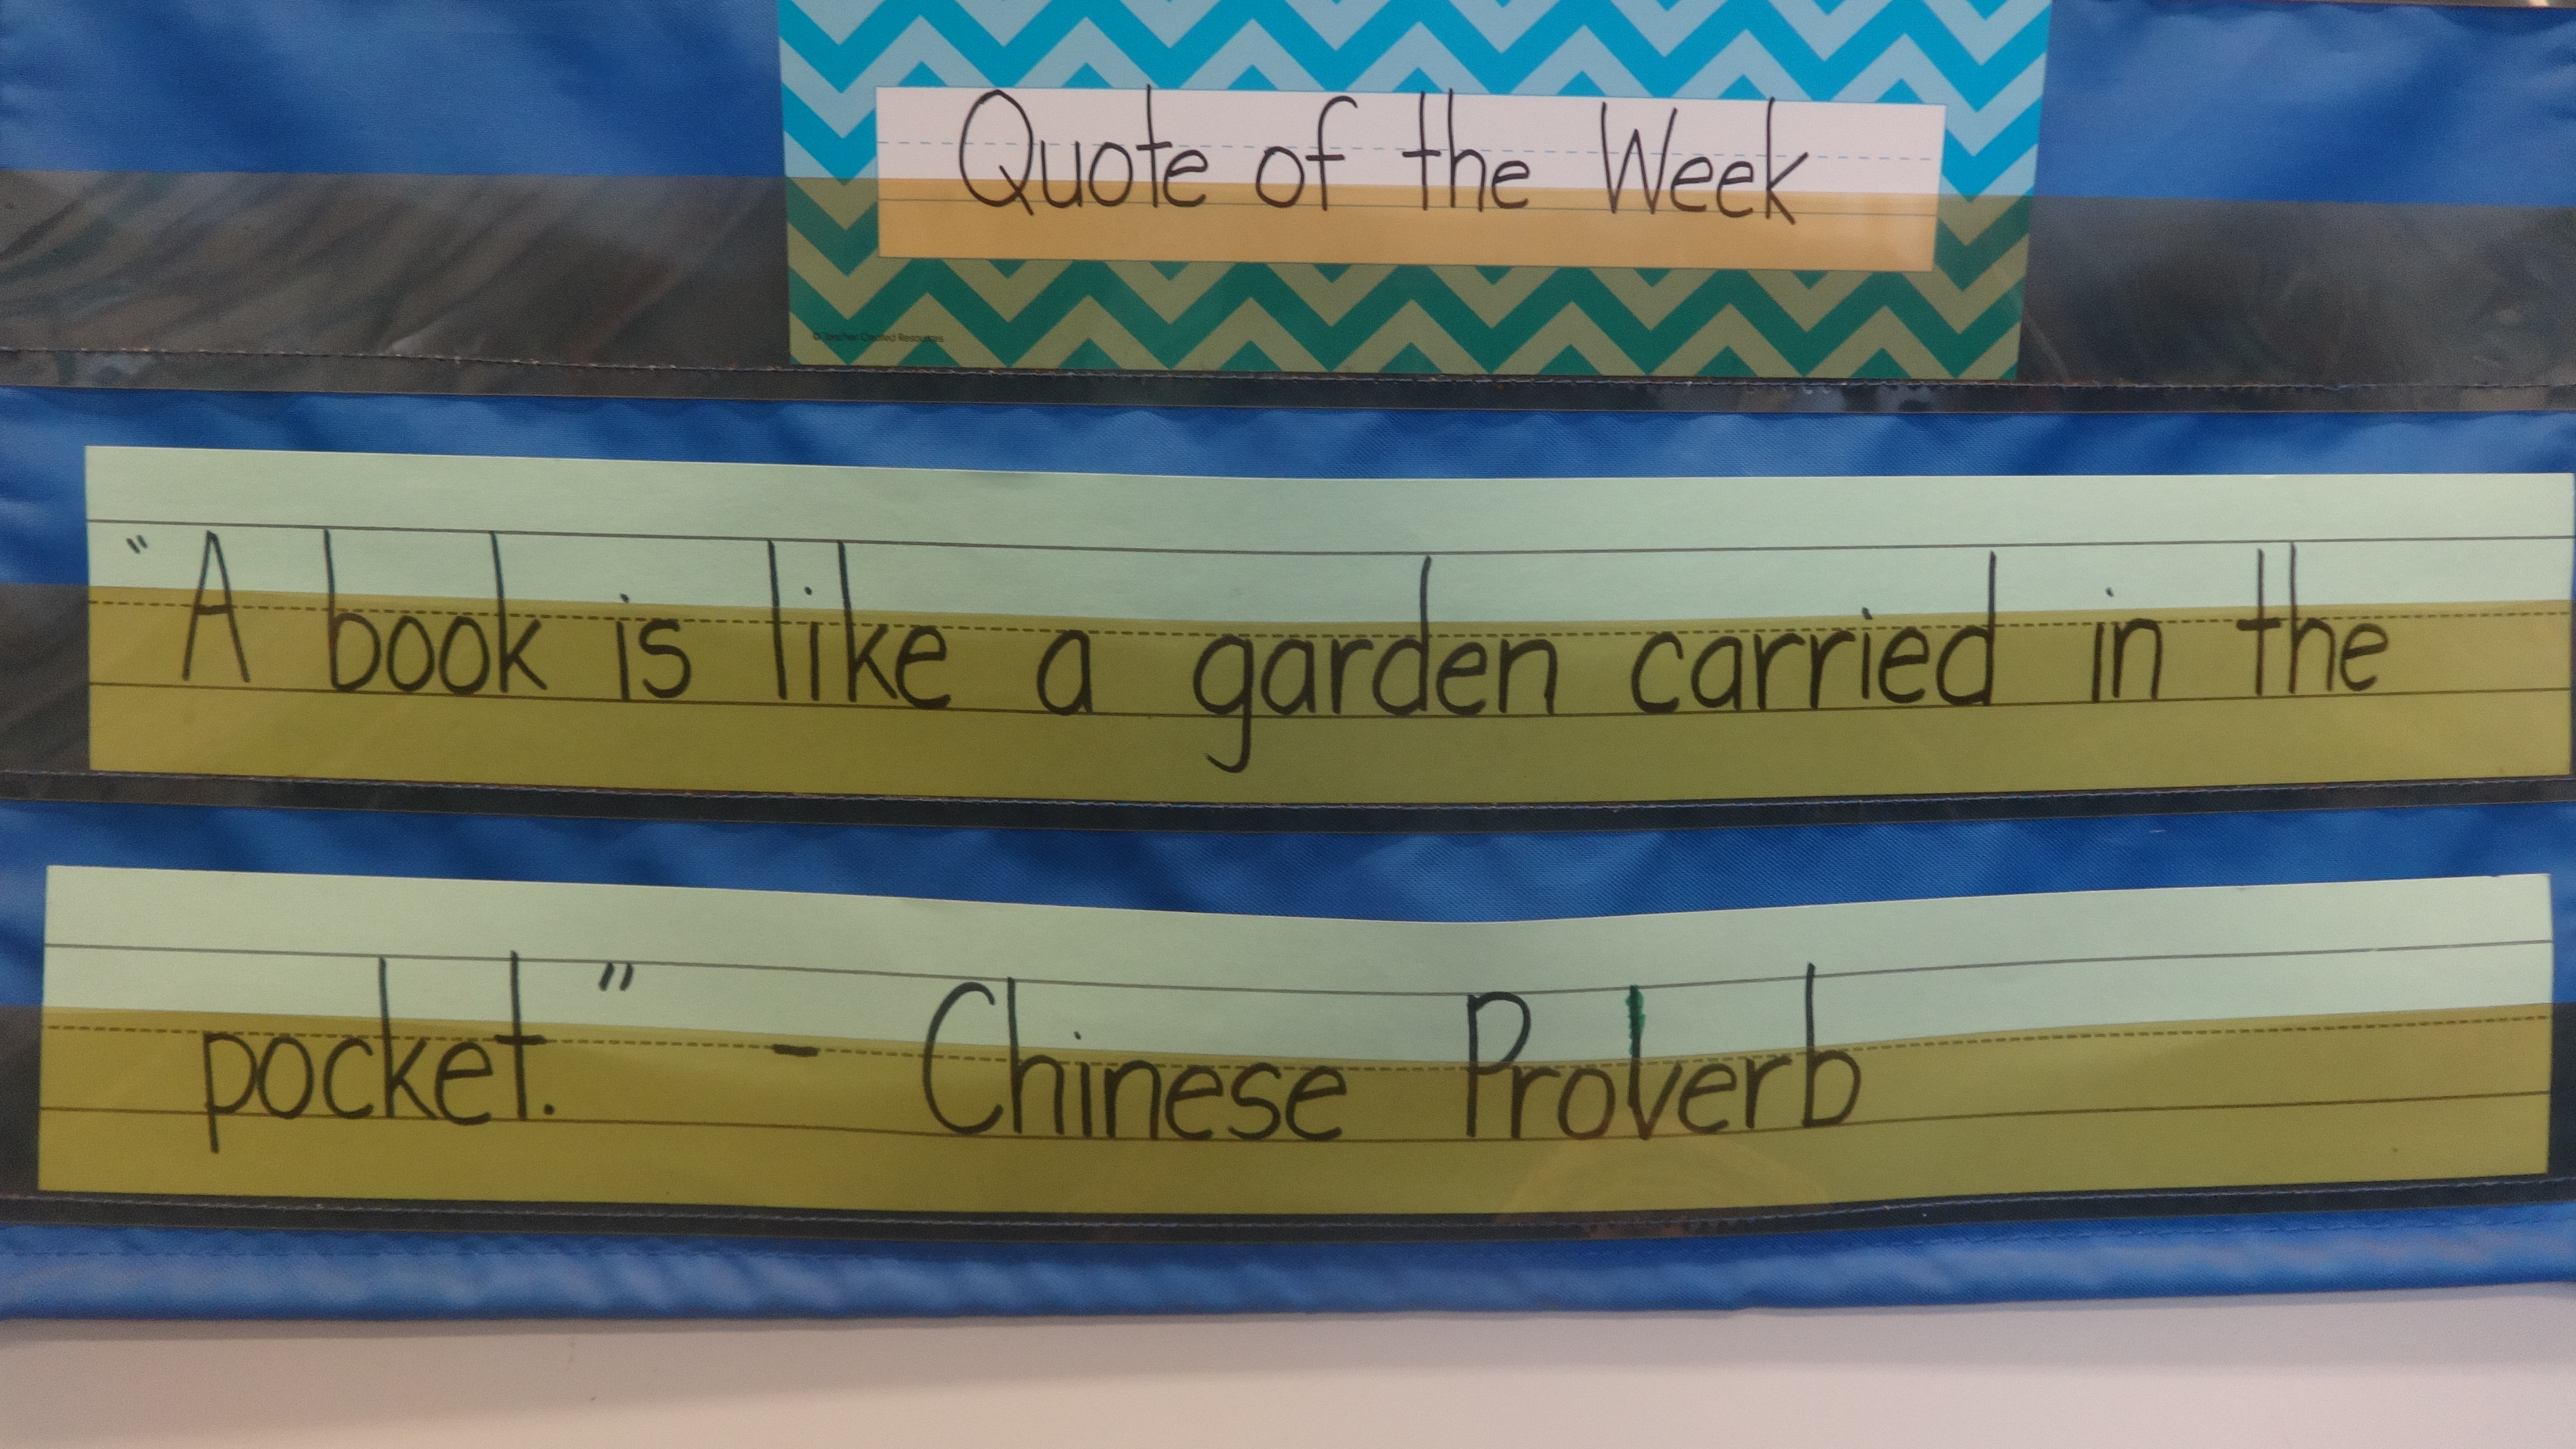 Quote of the Week
© Teacher Created Resources
"A book is like a garden carried in the
pocket." - Chinese Proverb